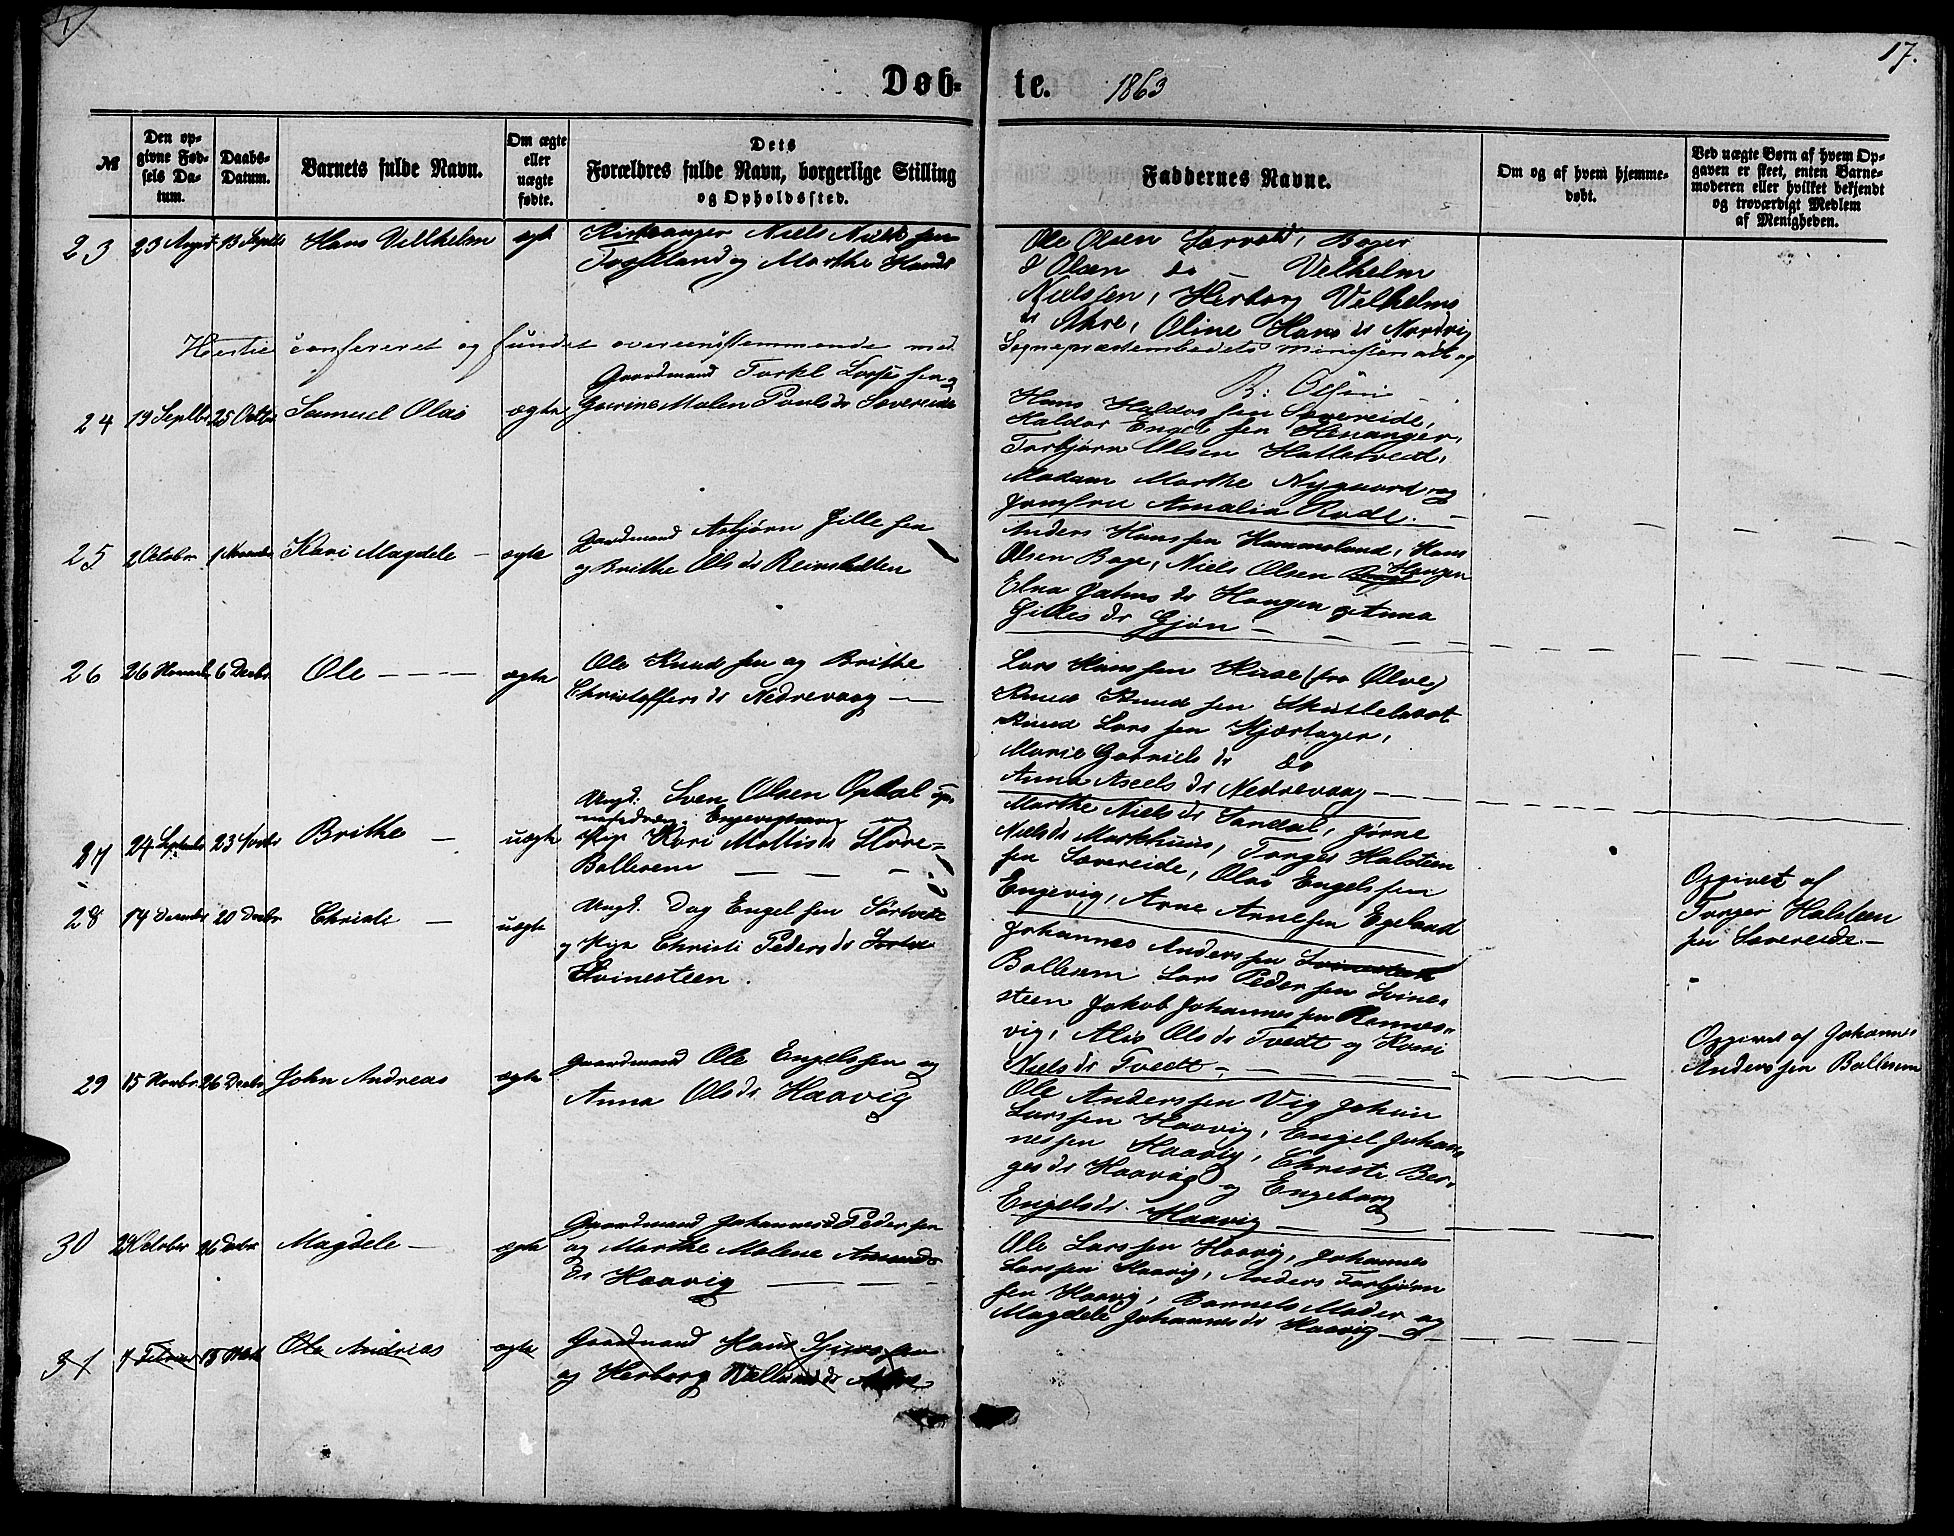 17.
Døb-
te. 1863
№
Den op-
givne Fød-
sels Da-
tum.
Daabs-
Datum.
Barnets fulde Navn.
Om ægte
eller
uægte
fødte.
Dets
Forældres fulde Navn, borgerlige Stilling
og Opholdssted.
Faddernes Navne.
Om og af hvem hjemme-
døbt.
Ved uægte Børn af hvem Op-
gaven er skeet, enten Barne-
moderen eller hvilket bekjendt
og troværdigt Medlem
af Menigheden.
23 23 August 13 Septbr Hans Villhelm ægt
Niels Nielssen
og Marthe Hansd
Ole Olsen
Olsen do - Velhelm
Nielssen, Herborg Velhelms
dr Ahre, Oline Hans dr Nordvig
Hertil confereret og fundet overeensstemmende med
Sognepræstembedets Ministerialbog
B: Olsen
24 19 Septbr 25 Octbr Samuel Olai ægte
Gaardmand Torkl
Malen Pouls dr Sævereide
Hans Haldor sen Sævereide,
Haldor Engel sen Henanger,
Torbjørn Olsen Hatletvedt,
Madam Marthe Nygaard og
Jomfru Amalia Rode. -
25 2 October 1 Novembr Kari Magdele - ægte
Gardmand Asbjørn Gille sen
og Brithe Ols dr
Anders Hans sen Hammeland, Hans
Olsen Boge, Niels Olsen Haugen
Elna dr Haugen og Anna
Gilles dr Gjøn -
26 26 Novembr 6 Decbr Ole - - - - ægte
Ole Knud sen og Brithe
Christoffers dr Nedrevaag -
Lars Hans sen Huse (fra Ølve)
Knud Knud sen
Knud Lars sen Hjortager,
Marie Gabriels dr do
Anna Axels dr Nedrevaag -
27 24 Septembr 23 Novbr Brithe - uægte
Ungk. Sven Olsen Opdal
og
Pige Kari Mattis dr Store-
Bollesem - - -
Marthe Niels dr Sandal, Jørne
Niels dr Markhuus, Torger Halsteen
sen Sævereide, Olai Engels sen
Engevig, Arne Arnesen Egeland
Opgivet af
Torger Halsteen
sen Sævereide -
28 14 Decembr 20 Decbr Christi - uægte
Ungk. Dag Engel sen
og Pige Christi Peders dr
Svinesteen.
Johannes Anders sen
Bollesem Lars Peder sen Svine-
steen Jakob Johannes sen Ramses-
vig, Alis Ols dr Tvedt og Kari
Niels dr Tvedt, -
Opgivet af Johannes
Anders sen Bollesem
29 15 Novbr 26 Decbr John Andreas ægte
Gaardmand Ole Engelssen og
Anna Ols dr Haavig
Ole Anders sen Vig Johan
Lars sen Haavig, Engel Johan-
nes sen Haavig, Christi Ber-
ges dr Haavig og Engeborg
Engels dr. Haavig -
30 29 October 26 Decbr Magdele - ægte
Gaardmand Johannes Peder sen
og Marthe Malene Amund-
dr Haavig - - -
Ole Lars sen Haavig, Johannes
Lars sen Haavig, Anders Torbjørn
sen Haavig, Barnets Moder og
Magdele Johannes dr Haavig -
31 7 Februar 15 Ole Andreas ægte
Gaardmand Hans
og Herborg